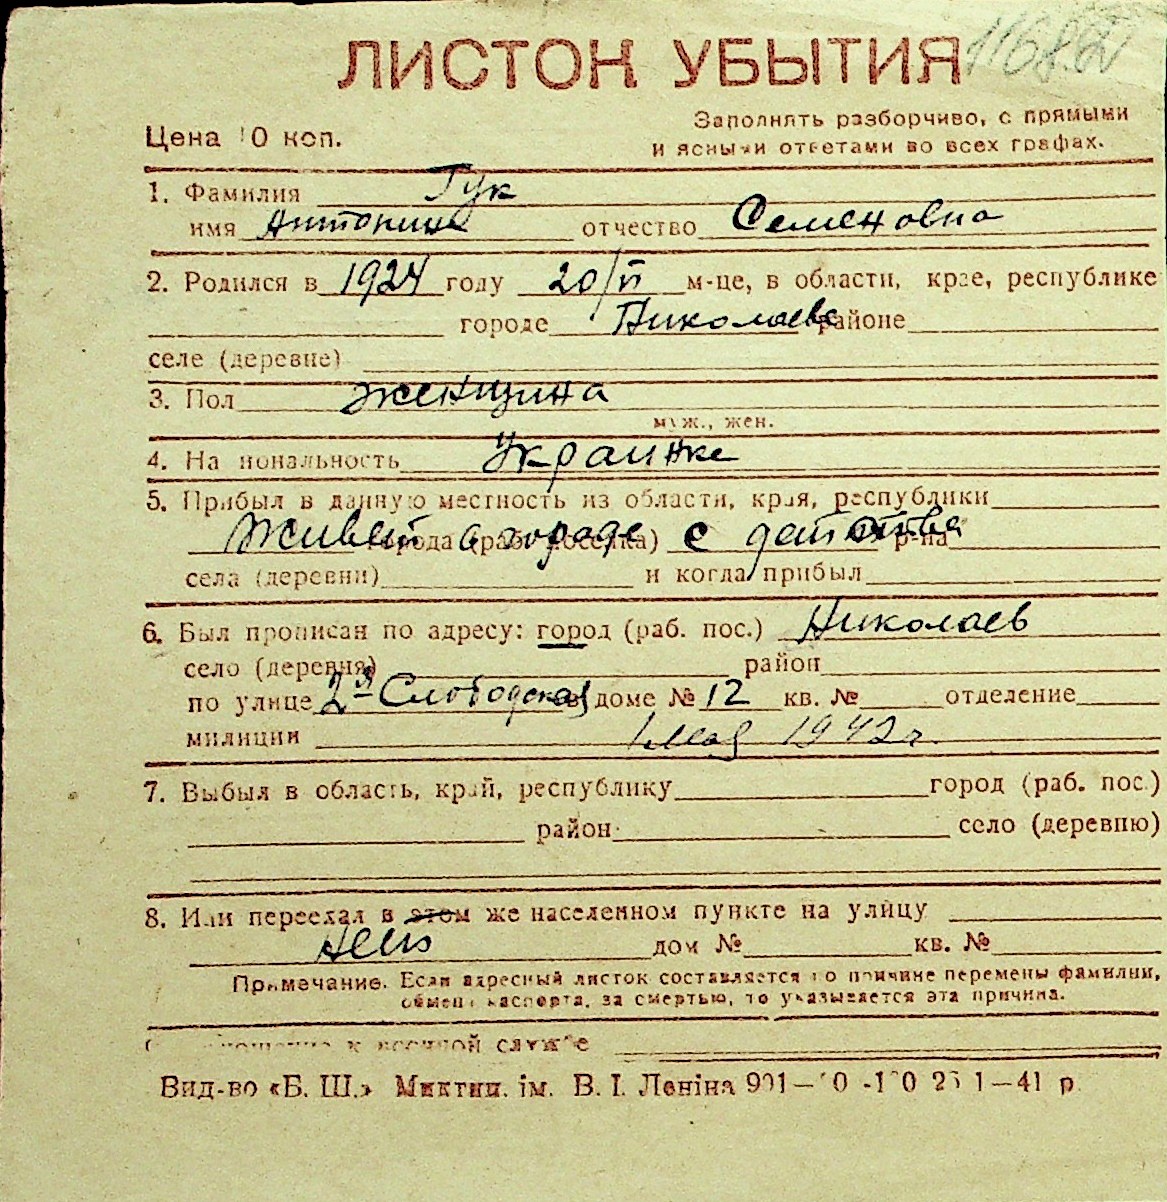 ЛИСТОК УБЫТИЯ
Цена 10 коп.
Заполнять разборчиво, с прямыми
и ясными ответами во всех графах.
1. Фамилия Гук
имя Антонина отчество Семеновна
2. Родился в 1924 году 20/II м-це, в области, крае, республике
городе Николаеве районе
селе (деревне)
3. Пол женщина
муж., жен.
4. Национальность Украинка
5. Прибыл в данную местность из области, края, республики
живет в городе с детства
города (раб. поселка) р-на
села (деревни) и когда прибыл
6. Был прописан по адресу: город (раб. пос.) Николаев
село (деревня) район
по улице 2я Слободская в доме № 12 кв. № отделение
милиции 1 мая 1942 г.
7. Выбыл в область, край, республику город (раб. пос.)
район село (деревню)
8. Или переехал в этом же населенном пункте на улицу
дом № кв. №
Примечание. Если адресный листок составляется по причине перемены фамилии,
обмена паспорта, за смертью, то указывается эта причина.
к военной службе
Вид-во «Б. Ш.» Миктип. ім. В. І. Леніна